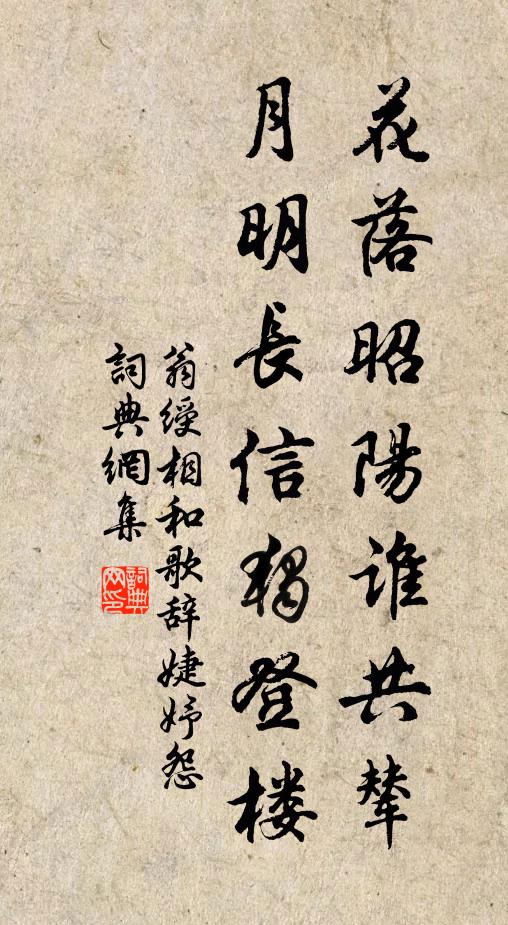 花落昭陽誰共輦
月明長信獨登楼
翁綬相和歌辞婕妤怨
詞典網集
詞典網印